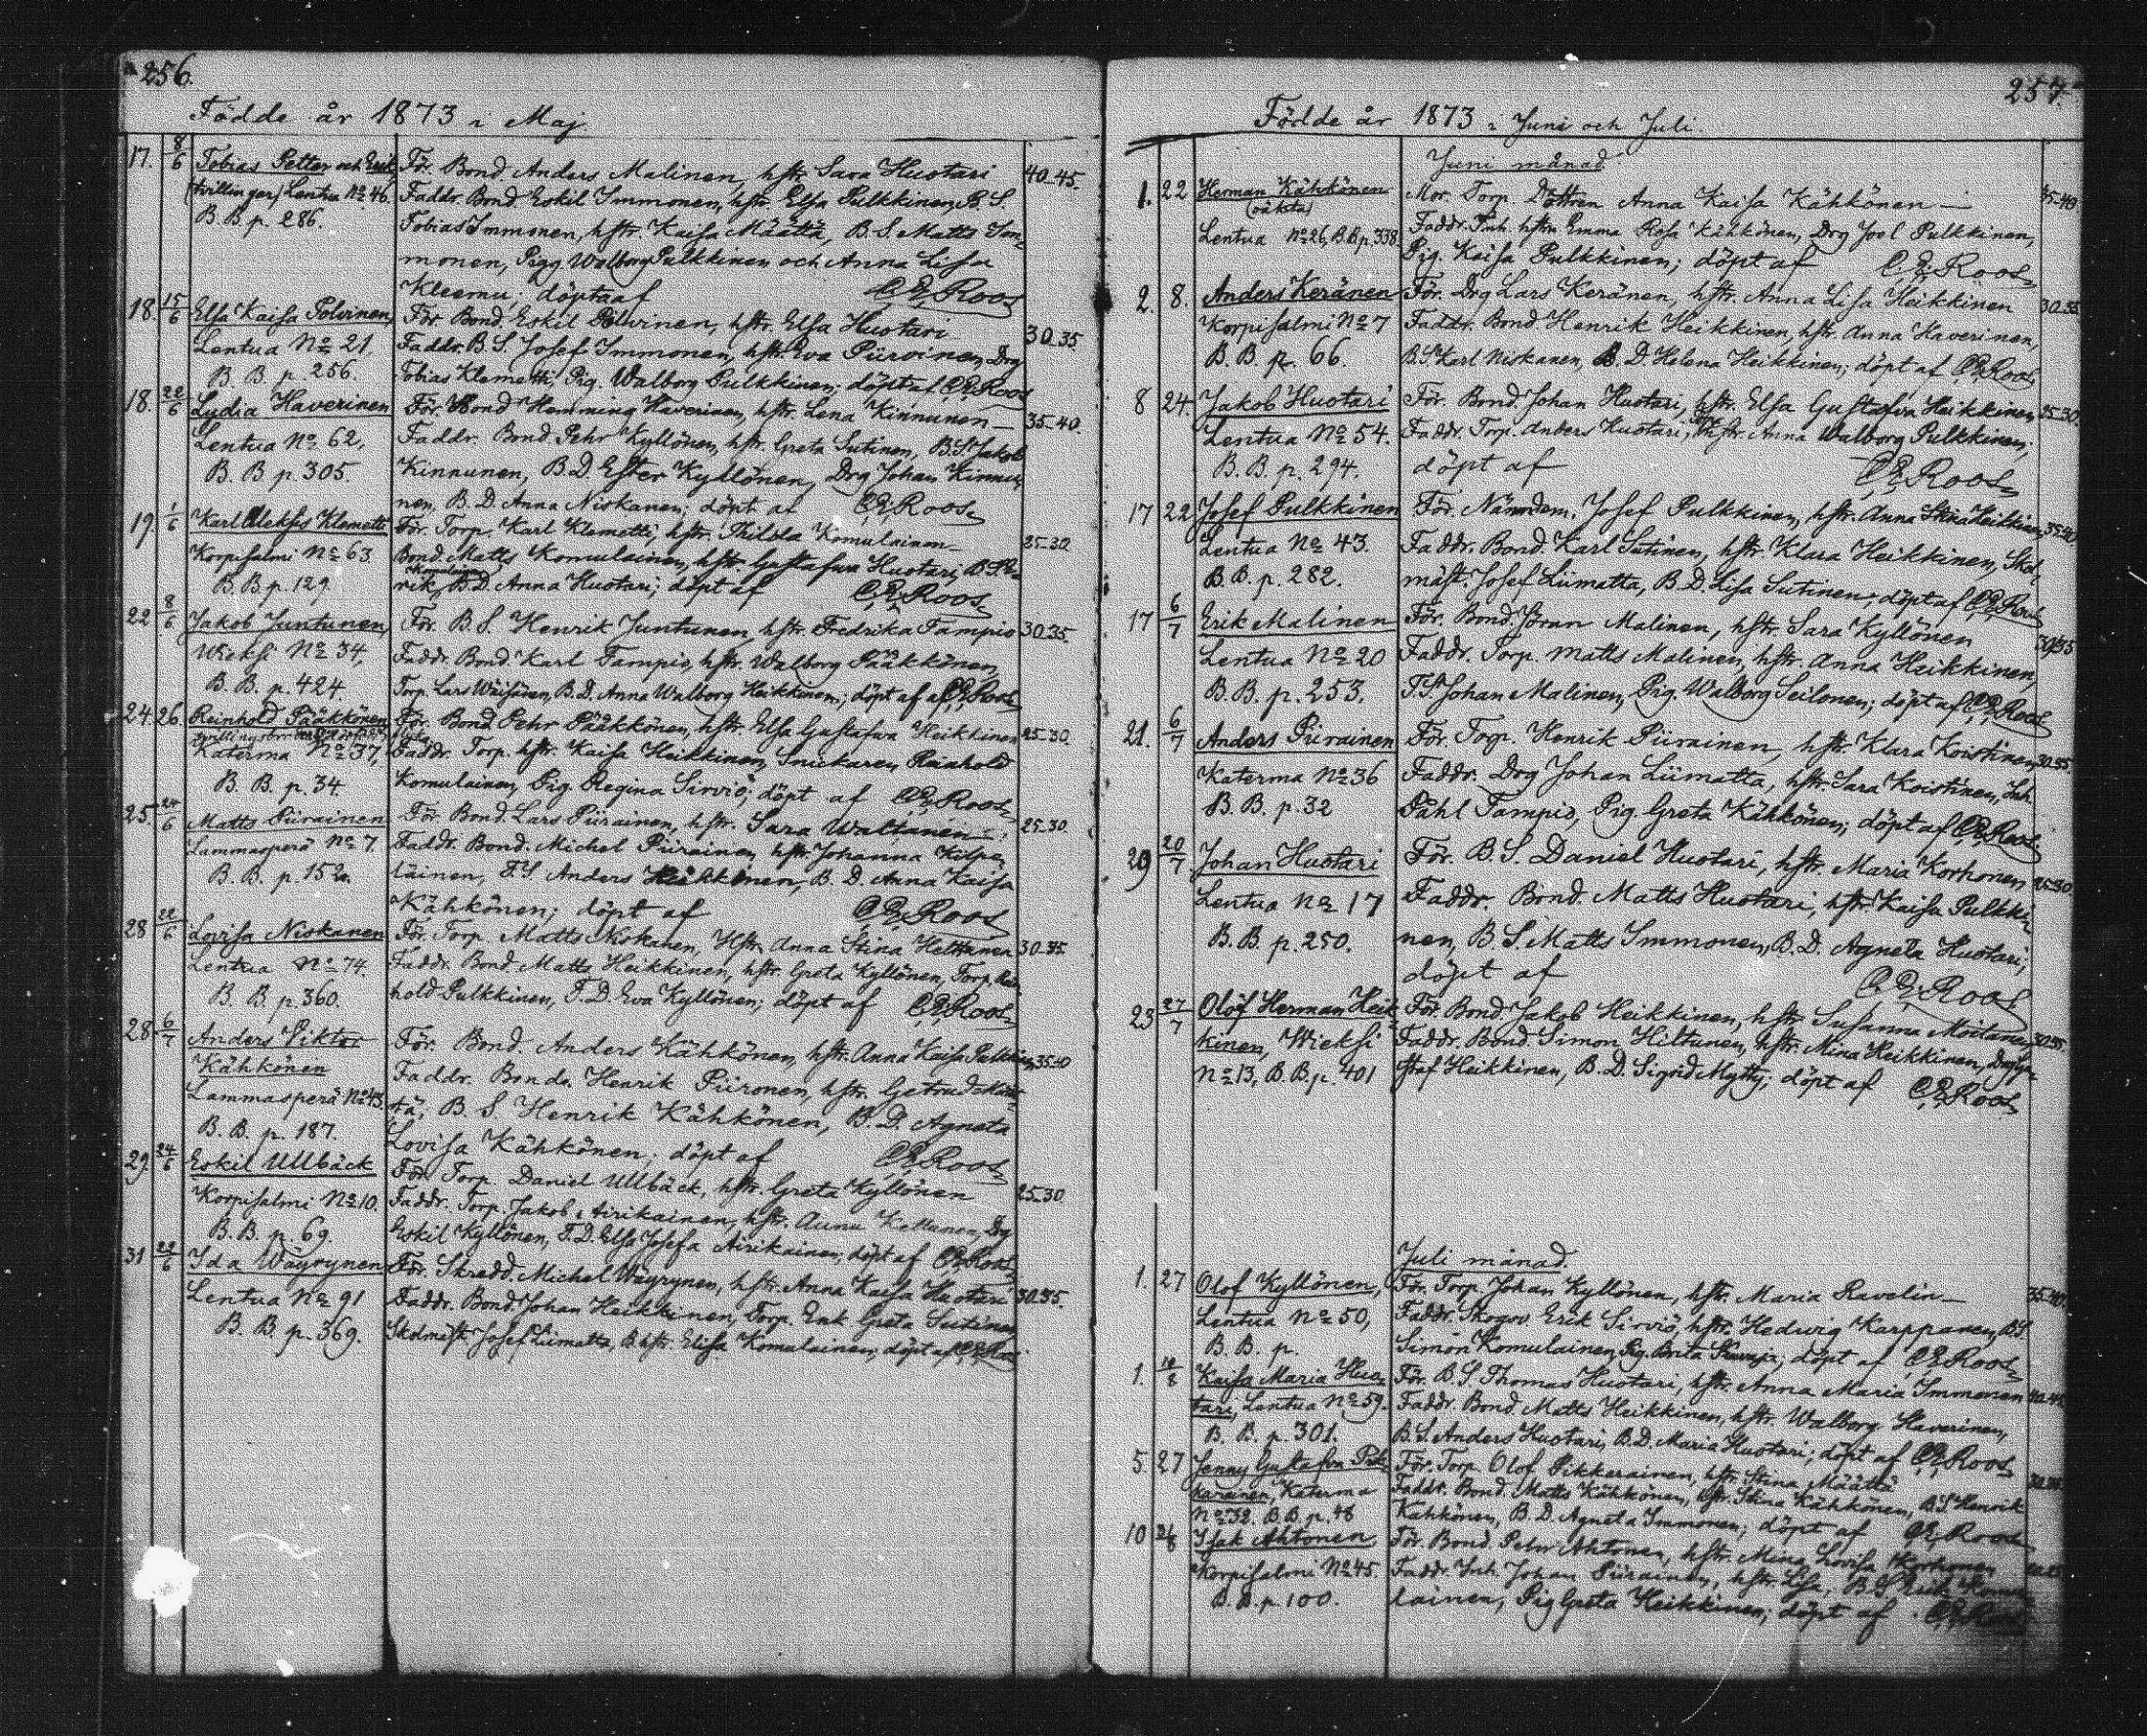 256.
Födde år 1873 i Maj
17. 8/6 Tobias Petter och Erik För. Bond. Anders Malinen, hstr. Sara Huotari 40-45.
(tvillingar) Lentua No 46. Faddr. Bond. Eskil Immonen, hstr. Elsa Pulkkinen, B. S.
B. B. p. 286. Tobias Immonen, hstr. Kaisa Määttä, B. S. Matts Im-
monen, Pigg Walborg Pulkkinen och Anna Lisa
Kleemu, döpta af C. E. Roos
18 15/6 Elsa Kaisa Polvinen, För. Bond. Eskil Polvinen, hstr. Elsa Huotari 30-35.
Lentua No 21, Faddr. B. S. Josef Immonen, hstr. Eva Piiroinen, Drg
B. B. p. 256. Tobias Klemetti, Pig. Walborg Pulkkinen; döpt af C. E. Roos
18. 22/6 Lydia Haverinen För. Bond Hemming Haverinen, hstr. Lena Kinnunen — 35-40.
Lentua No 62, Faddr. Bond Pehr Kyllönen, hstr. Greta Sutinen, B. S. Jakob
B. B. p. 305. Kinnunen, B. D. Ester Kyllönen, Drg Johan Kinnu-
nen, B. D. Anna Niskanen; döpt af C. E. Roos
19. 1/6 Karl Aleksis Klemetti För. Torp. Karl Klemetti, hstr. Thilda Komulainen — 25-30
Korpisalmi No 63 Bond. Matts Komulainen, hstr. Gustafva Huotari, B. S. E-
B. B. p. 129. rik Komulainen, B. D. Anna Huotari; döpt af C. E. Roos
22 8/6 Jakob Juntunen, För. B. S. Henrik Juntunen, hstr. Fredrika Tampio 30-35.
Wieksi No 34, Faddr. Bond. Karl Tampio, hstr. Walborg Pääkkönen,
B. B. p. 424 Torp. Lars Wäisänen, B. D. Anna Walborg Heikkinen; döpt af C. E. Roos
24. 26. Reinhold Pääkkönen För. Bond. Pehr Pääkkönen, hstr. Elsa Gustafva Heikkinen 25-30.
Katerma No 37, Faddr. Torp. hstr. Kaisa Heikkinen, Snickaren Reinhold
B. B. p. 34 Komulainen, Pig. Regina Sirviö; döpt af C. E. Roos
25. 24/6 Matts Piirainen För. Bond. Lars Piirainen, hstr. Sara Waltanen — 25-30.
Lammasperä No 7. Faddr. Bond. Michel Piirainen, hstr. Johanna Kilpe-
B. B. p. 152. läinen, T. S. Anders Heikkinen, B. D. Anna Kaisa
Kähkönen; döpt af C. E. Roos
28 22/6 Lovisa Niskanen För. Torp. Matts Niskanen, hstr. Anna Stina Halttunen 30-35.
Lentua No 74. Faddr. Bond. Matts Heikkinen, hstr. Greta Kyllönen, Torp. Rein-
B. B. p. 360. hold Pulkkinen, T. D. Eva Kyllönen; döpt af C. E. Roos
28. 6/7 Anders Viktor För. Bond. Anders Kähkönen, hstr. Anna Kaisa Pulkkinen 35-40
Kähkönen Faddr. Bonde Henrik Piironen, hstr. Getrud Määt-
Lammasperä No 43. tä, B. S. Henrik Kähkönen, B. D. Agneta
B. B. p. 187. Lovisa Kähkönen; döpt af C. E. Roos
29. 24/6 Eskil Ullbäck För. Torp. Daniel Ullbäck, hstr. Greta Kyllönen 25-30
Korpisalmi No 10. Faddr. Torp. Jakob Airikainen, hstr. Anna Keltanen, Drg
B. B. p. 69. Eskil Kyllönen, T. D. Elsa Josefa Airikainen; döpt af C. E. Roos
31 22/6 Ida Wäyrynen För. Skredd. Michel Wäyrynen, hstr. Anna Kaisa Huotari 30-35.
Lentua No 91 Faddr. Bond. Johan Heikkinen, Torp. Enk. Greta Sutinen
B. B. p. 369. Skolmäst. Josef Liimatta, B. hstr. Elisa Komulainen; döpt af C. E. Roos
257.
Födde år 1873 i Juni och Juli.
Juni månad
1. 22 Herman Kähkönen Mor. Torp. Dottren Anna Kaisa Kähkönen — 35-40.
(oäkta) Faddr. Inh. hstru Emma Rosa Kähkönen, Drg Joel Pulkkinen,
Lentua No 26, B. B. p. 338 Pig. Kaisa Pulkkinen; döpt af C. E. Roos
2. 8. Anders Keränen För. Drg Lars Keränen, hstr. Anna Lisa Heikkinen 30-35
Korpisalmi No 7 Faddr. Bond Henrik Heikkinen, hstr. Anna Haverinen,
B. B. p. 66. B. S. Karl Niskanen, B. D. Helena Heikkinen; döpt af C. E. Roos
8 24. Jakob Huotari För. Bond. Johan Huotari, hstr. Elsa Gustafva Heikkinen 25-30.
Lentua No 54. Faddr. Torp. Anders Huotari, hstr. Anna Walborg Pulkkinen;
B. B. p. 294. döpt af C. E. Roos
17 22 Josef Pulkkinen För. Nämndem. Josef Pulkkinen, hstr. Anna Stina Heikkinen 35-40.
Lentua No 43. Faddr. Bond. Karl Sutinen, hstr. Klara Heikkinen, Skol-
B. B. p. 282. mäst. Josef Liimatta, B. D. Lisa Sutinen; döpt af C. E. Roos
17 6/7 Erik Malinen För. Bond. Jöran Malinen, hstr. Sara Kyllönen 30-35
Lentua No 20 Faddr. Torp. Matts Malinen, hstr. Anna Heikkinen,
B. B. p. 253. T. S. Johan Malinen, Pig. Walborg Seilonen; döpt af C. E. Roos
21. 6/7 Anders Piirainen För. Torp. Henrik Piirainen, hstr. Klara Koistinen 30-35.
Katerma No 36 Faddr. Drg Johan Liimatta, hstr. Sara Koistinen, Inh.
B. B. p. 32 Påhl Tampio, Pig. Greta Kähkönen; döpt af C. E. Roos
29 20/7 Johan Huotari För. B. S. Daniel Huotari, hstr. Maria Korhonen 25-30.
Lentua No 17 Faddr. Bond. Matts Huotari, hstr. Kaisa Pulkki-
B. B. p. 250. nen, B. S. Matts Immonen, B. D. Agneta Huotari;
döpt af C. E. Roos
23 27/7 Olof Herman Heik- För. Bond. Jakob Heikkinen, hstr. Susanna Moilanen 30-35.
kinen, Wieksi Faddr. Bond. Simon Hiltunen, hstr. Mina Heikkinen, Drg Gu-
No 13, B. B. p. 401 staf Heikkinen, B. D. Sigrid Mytty; döpt af C. E. Roos
Juli månad.
1. 27 Olof Kyllönen, För. Torp. Johan Kyllönen, hstr. Maria Ravelin — 35-40.
Lentua No 50, Faddr. Skogsv. Erik Sirviö, hstr. Hedwig Karppanen, B. S.
B. B. p. Simon Komulainen, Pig. Brita; döpt af C. E. Roos
1. 10/8 Kaisa Maria Huo- För. B. S. Thomas Huotari, hstr. Anna Maria Immonen 40-45
tari, Lentua No 59. Faddr. Bond. Matts Heikkinen, hstr. Walborg Haverinen,
B. B. p. 301. B. S. Anders Huotari, B. D. Maria Huotari; döpt af C. E. Roos
5. 27 Jenny Gustafva Pik- För. Torp. Olof Pikkarainen, hstr. Stina Määttä
karainen, Katerma Faddr. Bond. Matts Kähkönen, hstr. Stina Kähkönen, B. S. Henrik
No 32. B. B. p. 48 Kähkönen, B. D. Agneta Immonen; döpt af C. E. Roos
10 Isak Ahtonen För. Bond. Petter Ahtonen, hstr. Mina Lovisa Korhonen
Korpisalmi No 45. Faddr. Inh. Johan Piirainen, hstr. Lisa, B. S. Erik Komu-
B. B. p. 100. lainen, Pig Greta Heikkinen; döpt af C. E. Roos